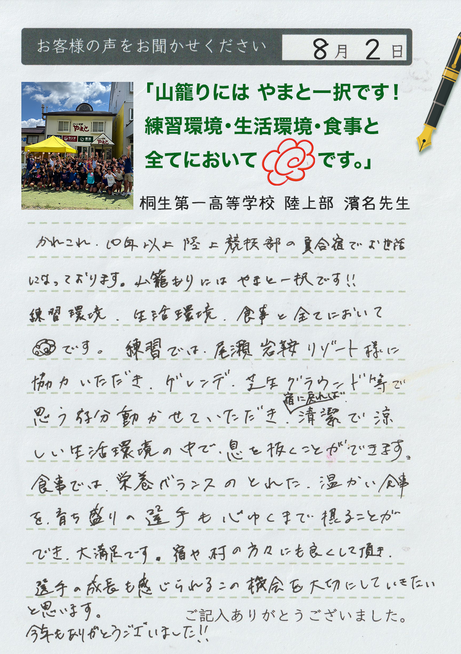 お客様の声をお聞かせください 8月2日
「山籠りには やまと一択です!
練習環境・生活環境・食事と
全てにおいて です。」
桐生第一高等学校 陸上部 濱名先生
かれこれ、10年以上陸上競技部の夏合宿でお世話
になっております。山籠もりにはやまと一択です!!
練習環境、生活環境、食事と全てにおいて
です。練習では、尾瀬岩鞍リゾート様に
協力いただき、ゲレンデ、芝生グラウンド等で
思う存分動かせていただき、宿に戻れば清潔で涼
しい生活環境の中で、息を抜くことができます。
食事では、栄養バランスのとれた、温かい食事
を、育ち盛りの選手も心ゆくまで摂ることが
でき、大満足です。宿や村の方々にも良くして頂き、
選手の成長も感じられるこの機会を大切にしていきたい
と思います。
今年もありがとうございました!!
ご記入ありがとうございました。